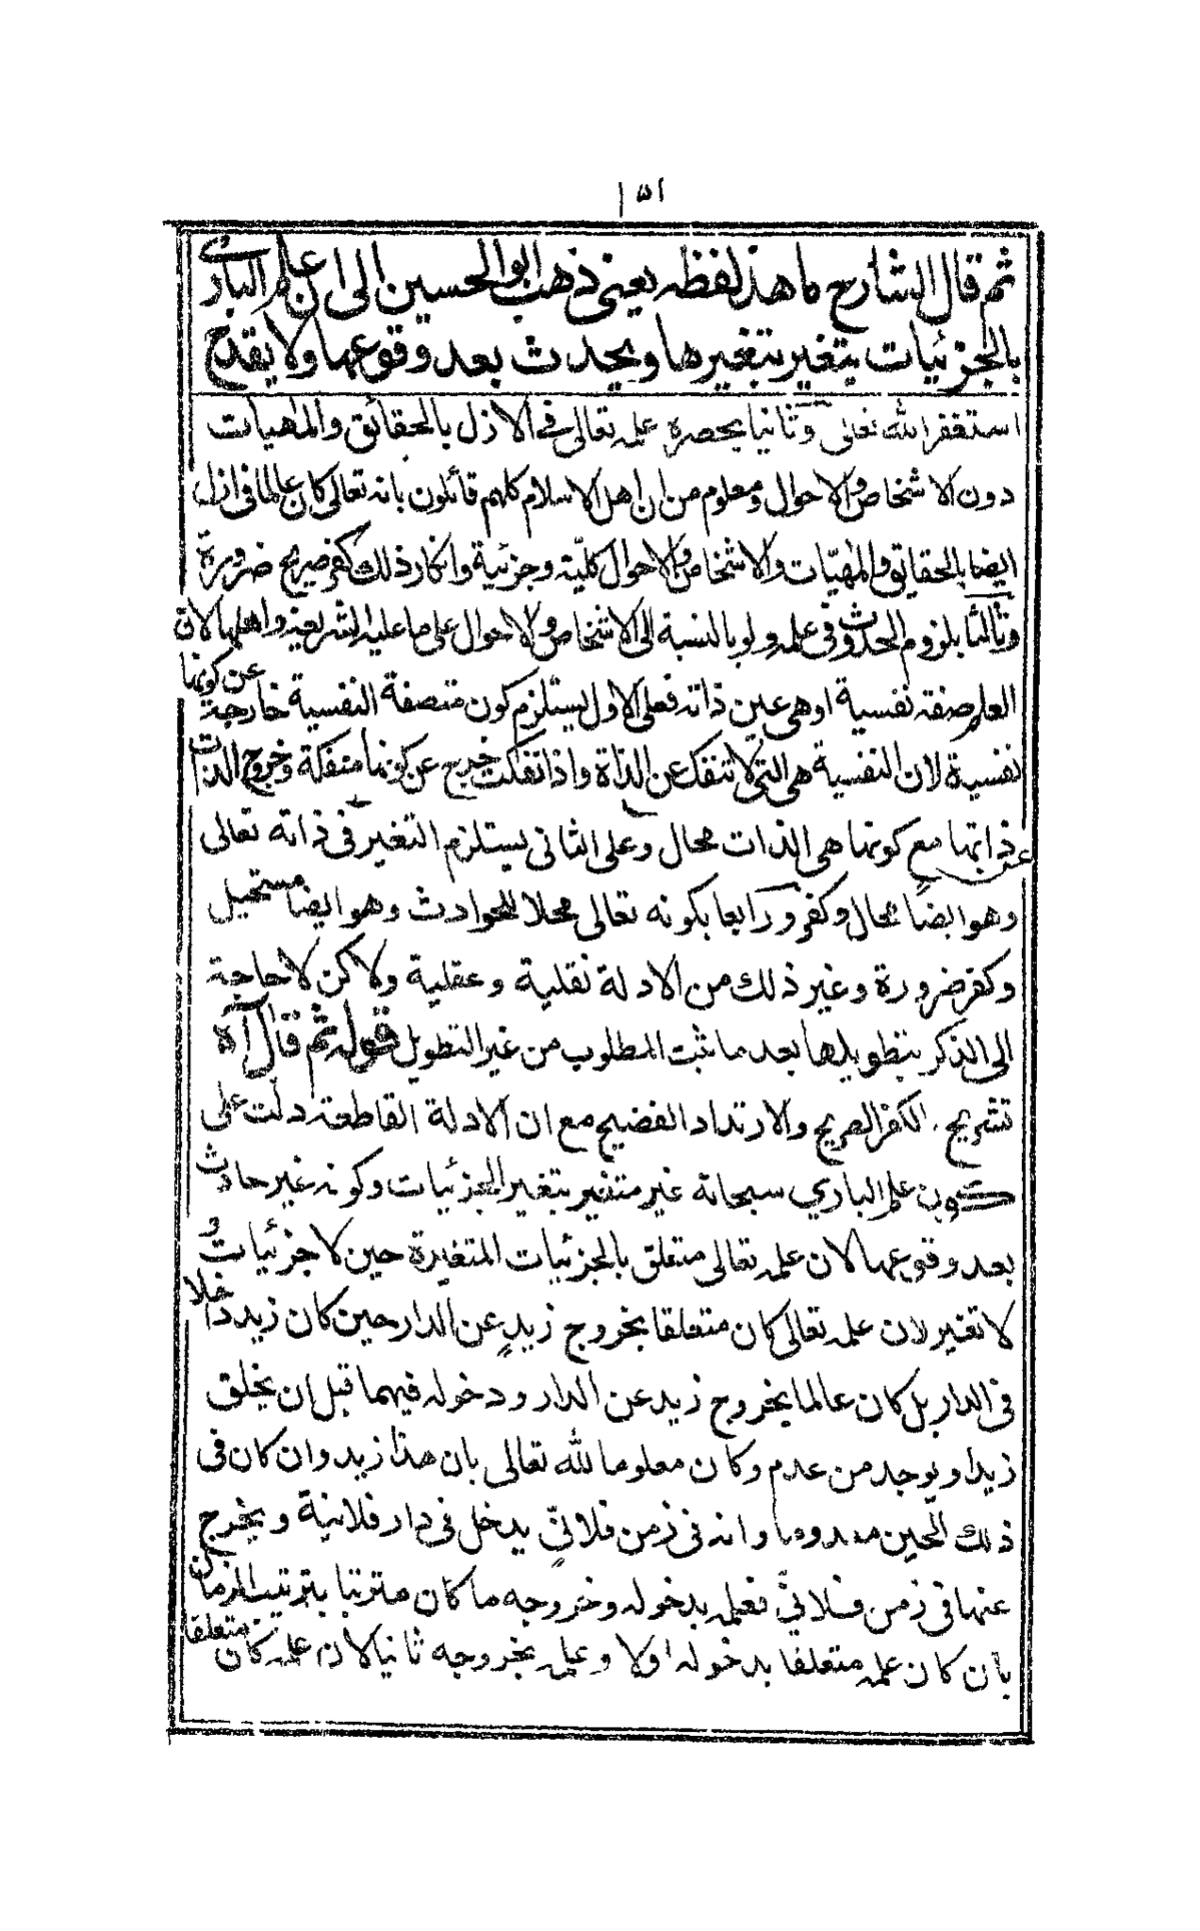 ١٥١
ثم قال الشارح ما هذ لفظه يعنى ذهب ابو الحسين الى ان علم البارى
بالجزئيات يتغير بتغيرها ويحدث بعد وقوعها ولا يقدح
استغفر الله تعالى وثانيا بحصره علمه تعالى فى الازل بالحقائق والماهيات
دون الاشخاص والاحوال ومعلوم من ان اهل الاسلام كلهم قائلون بانه تعالى كان عالما فى ازل
ايضا بالحقايق والمهيّات والاشخاص والاحوال كليّته وجزئية وانكار ذلك كفر صريح ضرورة
وثالثا بلزوم الحدوث فى علمه ولو بالنسبة الى الاشخاص والاحوال على ما عليه الشريعة واهلها لان
العلم صفته نفسية او هى عين ذاته فعلى الاول يستلزم كون متصفة النفسية خارجة عن كونها
نفسية لان النفسية هى التى لا تنفك عن الذاة واذا تفكت خرج عن كونها منفكة وخروج الذات
عن ذاتها مع كونها هى الذات محال وعلى الثانى يستلزم التغير فى ذاته تعالى
وهو ايضا محال وكفر ورابعا بكونه تعالى محلا للحوادث وهو ايضا مستحيل
وكفر ضرورة وغير ذلك من الادلة نقلية وعقلية ولاكن لا حاجة
الى الذكر بتطويلها بعد ما ثبت المطلوب من غير التطويل قوله ثم قال آه
تشريح الكفر الصريح والارتداد الفضيح مع ان الادلة القاطعة دلت على
كون علم الباري سبحانه غير متغير بتغير الجزئيات وكونه غير حادث
بعد وقوعها لان علمه تعالى متعلق بالجزئيات المتغيرة حين لا جزئيات و
لا تغير لان علمه تعالى كان متعلقا بخروج زيدٍ عن الدار حين كان زيد داخلا
فى الدار بل كان عالما بخروج زيد عن الدار ودخوله فيهما قبل ان يخلق
زيدا ويوجد من عدم وكان معلوما لله تعالى بان هذا زيد وان كان فى
ذلك الحين معدوما وانه فى زمن فلانيّ يدخل فى دار فلانية ويخرج
عنها فى زمن فلانيّ فعلمه بدخوله وخروجه ما كان مترتبا بترتيب الزمان
بان كان علمه متعلقا بدخوله اولا وعلمه بخروجه ثانيا لان علمه كان متعلقا